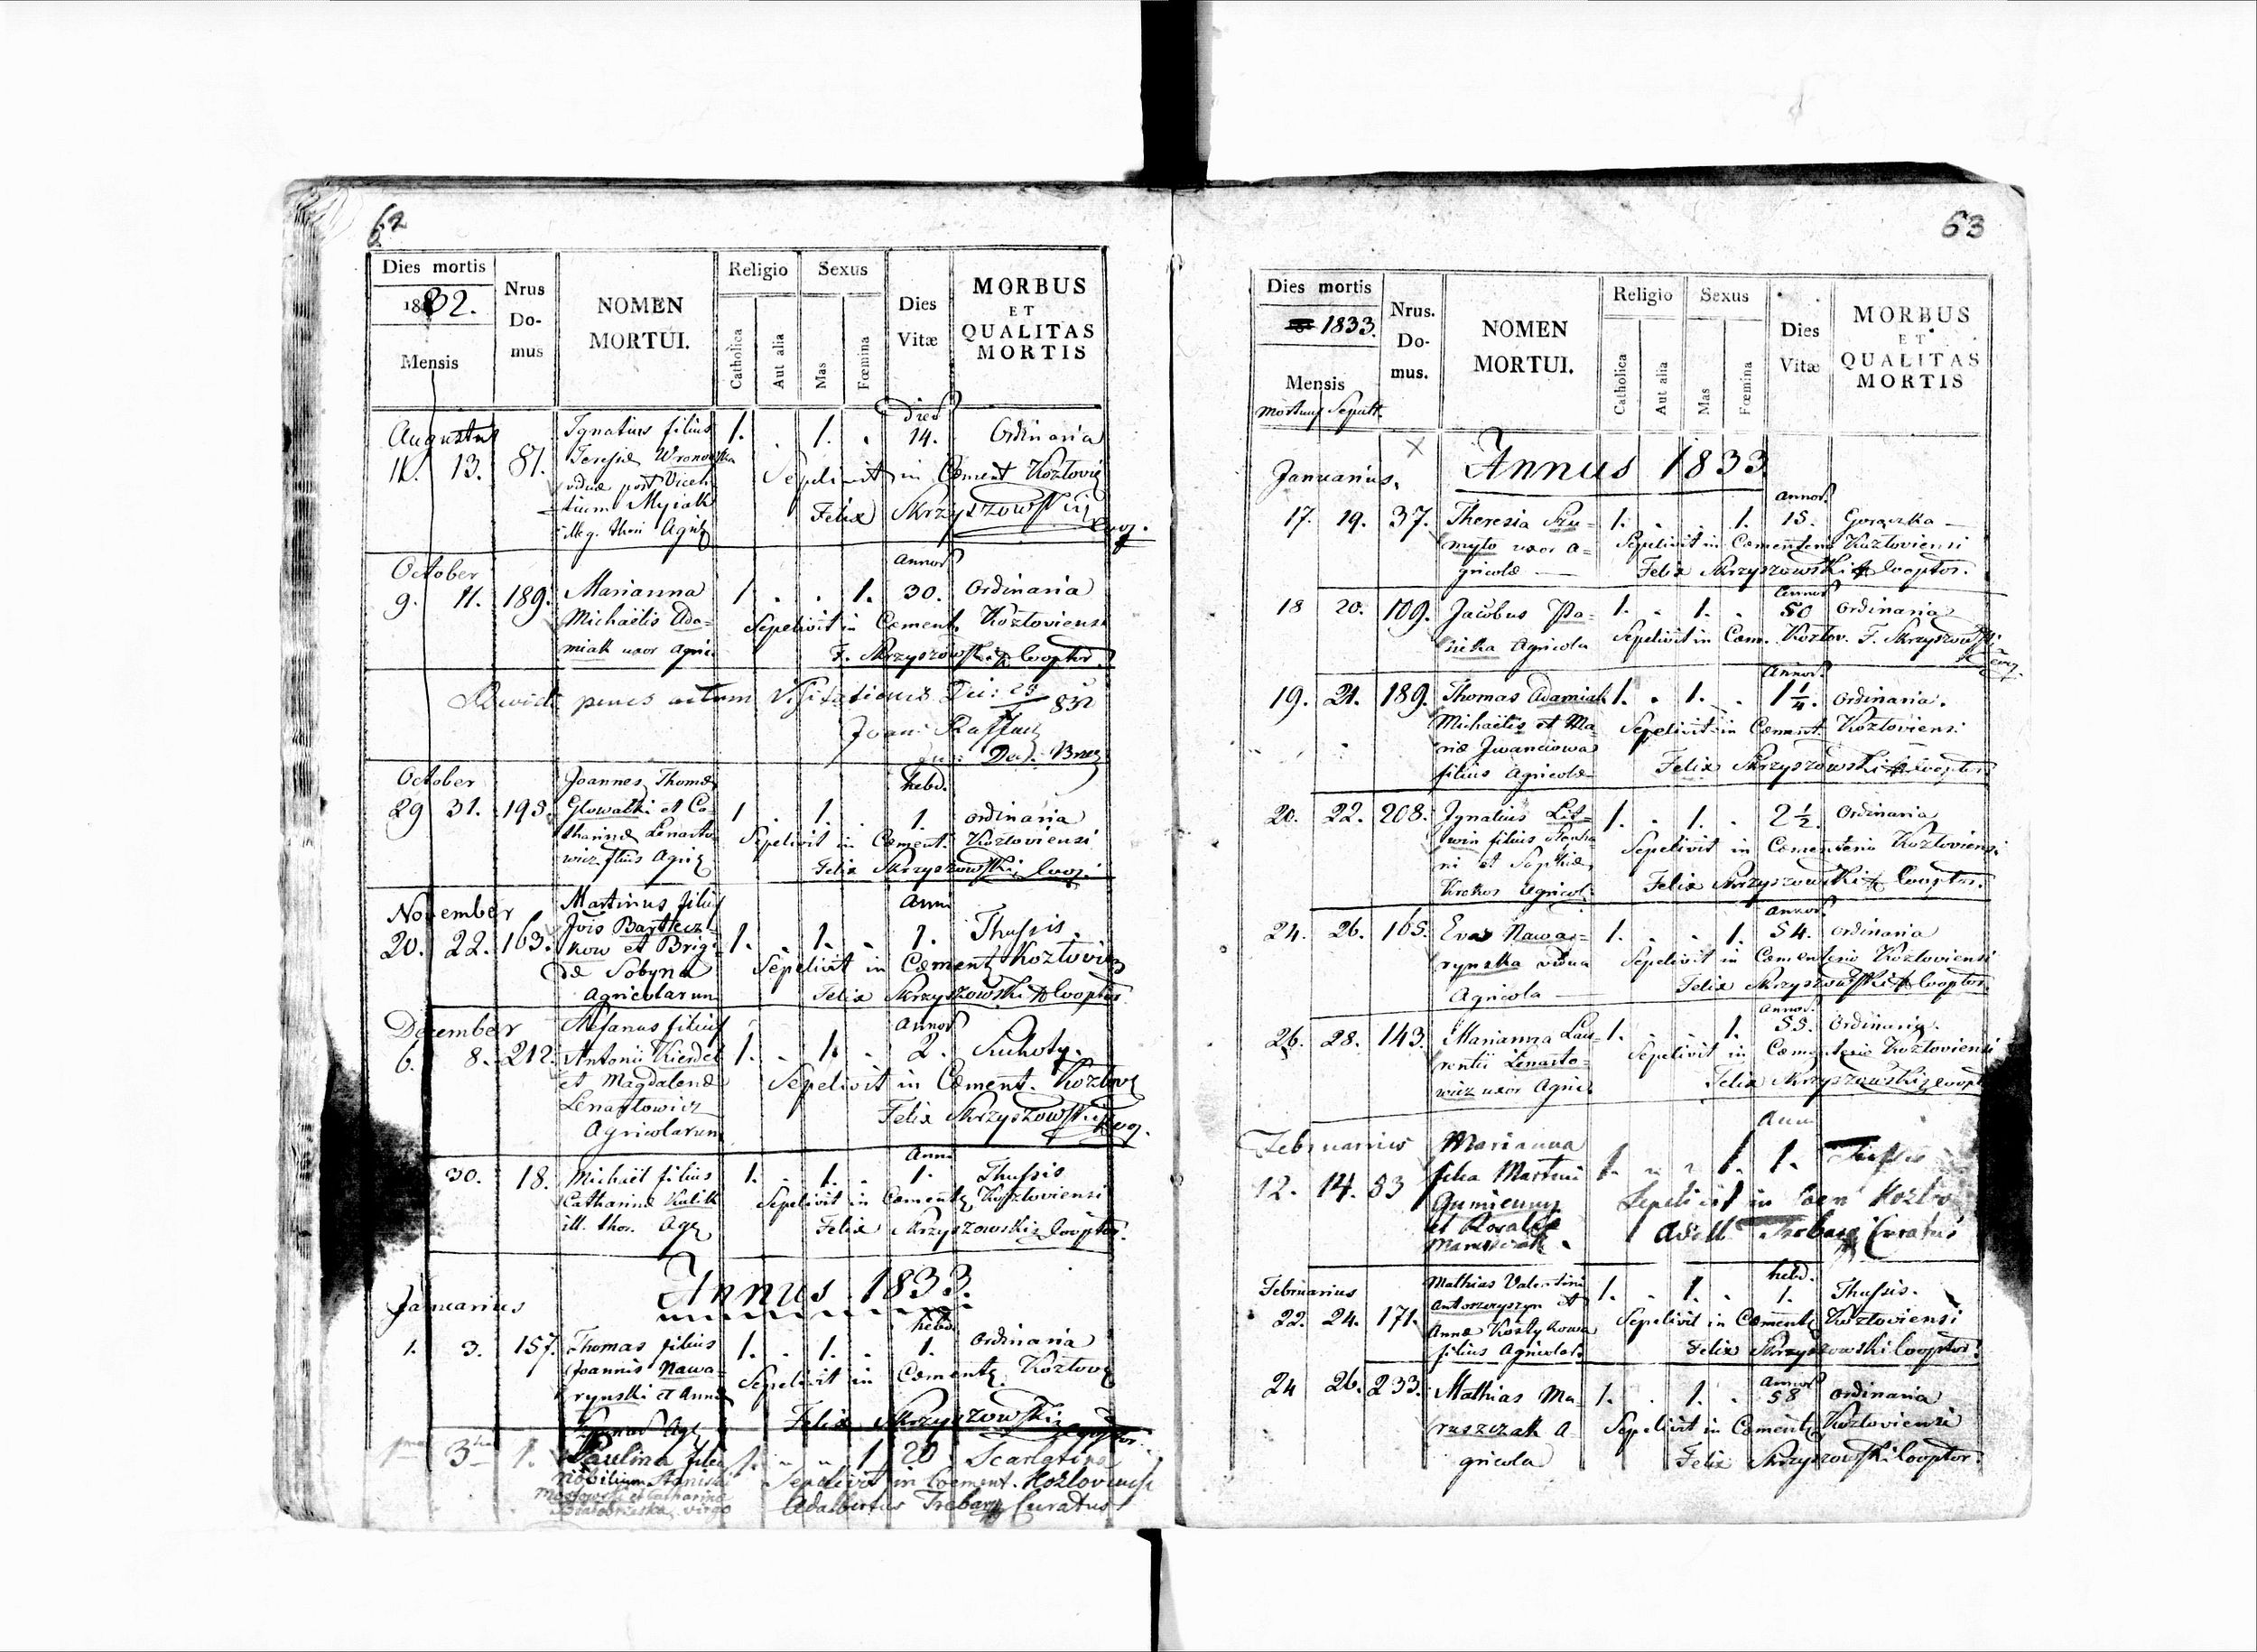 62
Dies mortis
1832.
Mensis
Nrus Domus
NOMEN MORTUI.
Religio
Catholica
Aut alia
Sexus
Mas
Fœmina
Dies Vitæ
MORBUS ET QUALITAS MORTIS
Augustus
11. 13. 81.
Ignatius filius
1. . 1. .
dies
14.
Ordinaria
viduæ post Vicen
tium Mysiak
Sepelivit in Cœment Kozłovi
Felix Skrzyszowski
October
9. 11. 189.
Marianna
Michaëlis Ada-
miak uxor Agric
1 . . 1.
Annor
30.
Ordinaria
Sepelivit in Cœment. Kozłoviensi
F. Skrzyszowski Cooptor.
penes actum Visitationis
October
29 31. 193.
Joannes Thomæ
Głowatki et Ca-
tharinæ Lenarto
wicz filius Agric
1 . 1. .
hebd.
1.
ordinaria
Sepelivit in Cœment. Kozłoviensi
Felix Skrzyszowski Coop.
November
20. 22. 163.
Martinus filius
kow et Brigi-
dæ Sobyna
Agricolarum
1. . 1. .
Anni
1.
Thussis.
Sepelivit in Cœment Kozłovien
Felix Skrzyszowski Cooptor
December
6. 8. 212.
Stefanus filius
Antonii Kierdel
et Magdalenæ
Lenartowicz
Agricolarum
1. . 1. .
Annor
2.
Suchoty.
Sepelivit in Cœment. Kozłov
Felix Skrzyszowski Coop.
30. 18.
Michaël filius
Catharinæ Kulik
ill. thor. Agr
1. . 1. .
Anni
1.
Thussis
Sepelivit in Cœment Kozłoviensi
Felix Skrzyszowski Cooptor.
Annus 1833.
Januarius
1. 3. 157.
Thomas filius
Joannis Nawa-
rynski et Annæ
1. . 1. .
hebd.
1.
Ordinaria
Sepelivit in Cœment. Kozłov
Felix Skrzyszowski Cooptor.
3 1.
Paulina filia
Nobilium Stanislai
et Catharinæ
virgo
1 20 Scarlatina
Sepelivit in Coement. Kozloviensi
Adalbertus Trebacz Curatus
63
Dies mortis
1833.
Mensis
Mortuus Sepult.
Nrus. Domus.
NOMEN MORTUI.
Religio
Catholica
Aut alia
Sexus
Mas
Fœmina
Dies Vitæ
MORBUS ET QUALITAS MORTIS
Annus 1833
Januarius.
17. 19. 37.
Theresia Szu-
myło uxor A-
gricolæ
1. . . 1.
annor.
15.
Gorączka
Sepelivit in Cœmenterio Kozłoviensi
Felix Skrzyszowski Cooptor.
18 20. 109.
Jacobus Pa-
Agricola
1. . 1. .
Annor
50
Ordinaria
Sepelivit in Cœm. Kozłov. F. Skrzyszowski
19. 21. 189.
Thomas Adamiak
Michaëlis et Ma-
riæ Iwanciowa
filius Agricolæ
1. . 1. .
Annor.
1 1/4.
Ordinaria.
Sepelivit in Cœment. Kozłoviensi
Felix Skrzyszowski Cooptor
20. 22. 208.
Ignatius Lit-
win filius
ni et Sophiæ
Krokos Agricol.
1. . 1. .
2 1/2.
Ordinaria
Sepelivit in Cœmenterio Kozłoviensi
Felix Skrzyszowski Cooptor.
24. 26. 165.
Eva Nawa-
rynska vidua
Agricola
1. . . 1.
Annor.
54.
Ordinaria
Sepelivit in Cœmenterio Kozłoviensi
Felix Skrzyszowski Cooptor.
26. 28. 143.
Marianna Lau-
rentii Lenarto-
wicz uxor Agric.
1. . . 1.
Annor.
53.
Ordinaria.
Sepelivit in Cœmenterio Kozłoviensi
Felix Skrzyszowski Coopt
Februarius
12. 14. 83
Marianna
filia Martini
Gumienny
et Rosaliæ
1. 1. 1.
Anni
Sepelivit in Coem Kozlo
Trebacz Curatus
Februarius
22. 24. 171.
Mathias Valentini
Antoszczyszyn et
Annæ Kostykowa
filius Agricolar.
1. . 1. .
hebd.
1.
Thussis.
Sepelivit in Cœment Kozłoviensi
Felix Skrzyszowski Cooptor.
24 26. 233.
Mathias Ma
ruszczak A-
gricola
1. . 1. .
Annor
58
Ordinaria
Sepelivit in Cœment Kozłoviensi
Felix Skrzyszowski Cooptor.